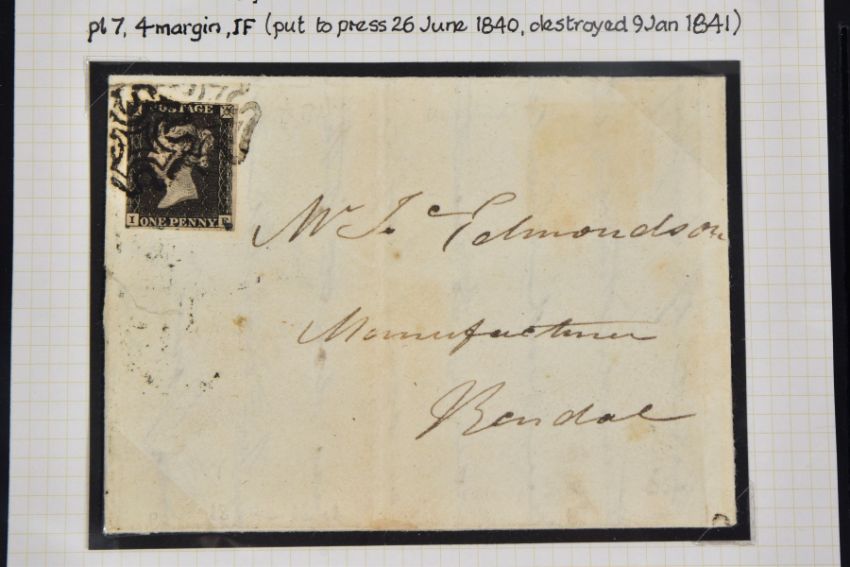 pl 7, 4-margin, IF (put to press 26 June 1840, destroyed 9 Jan 1841)
POSTAGE
I ONE PENNY F
Mr J. Edmondson
Manufacturer
Kendal